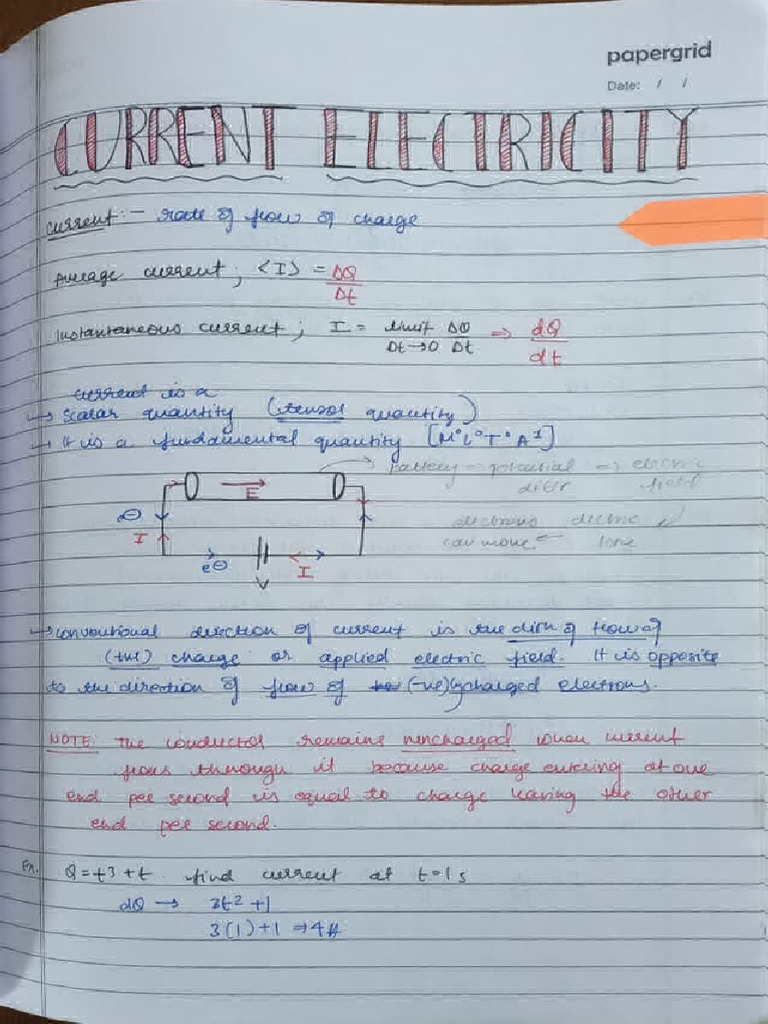 papergrid
Date: / /
CURRENT ELECTRICITY
current :- rate of flow of charge
Average current; <I> = ΔQ/Δt
Instantaneous current; I = limit Δt→0 ΔQ/Δt ⇒ dQ/dt
current is a
→ scalar quantity (tensor quantity)
→ It is a fundamental quantity [M°L°T°A¹]
battery → potential diff → electric field
electrons can move ← electric force
E
⊖
I
e⊖
I
V
→ conventional direction of current is the dirn of flow of
(+ve) charge or applied electric field. It is opposite
to the direction of flow of (-ve)ly charged electrons.
NOTE: The conductor remains uncharged when current
flows through it because charge entering at one
end per second is equal to charge leaving the other
end per second.
Ex. Q = t3 + t. find current at t=1s
dQ → 3t² + 1
3(1)+1 ⇒ 4A